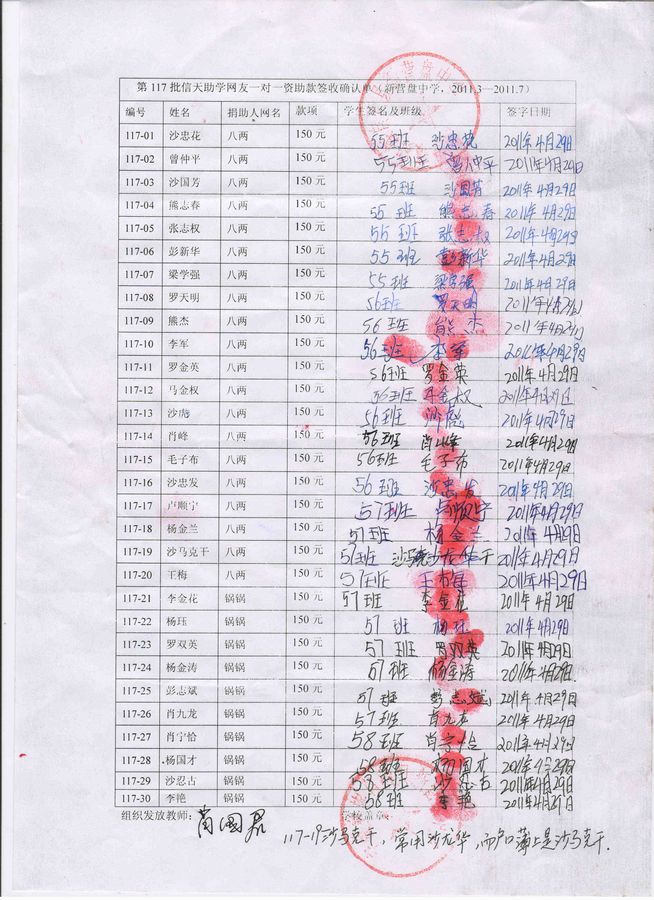 第 117 批信天助学网友一对一资助款签收确认单（新营盘中学，2011.3—2011.7）
编号 姓名 捐助人网名 款项 学生签名及班级 签字日期
117-01 沙忠花 八两 150 元 55班 沙忠花 2011年4月29日
117-02 曾仲平 八两 150 元 55班 曾仲平 2011年4月29日
117-03 沙国芳 八两 150 元 55班 沙国芳 2011年4月29日
117-04 熊志春 八两 150 元 55班 熊志春 2011年4月29日
117-05 张志权 八两 150 元 55班 张志权 2011年4月29日
117-06 彭新华 八两 150 元 55班 彭新华 2011年4月29日
117-07 梁学强 八两 150 元 55班 梁学强 2011年4月29日
117-08 罗天明 八两 150 元 56班 罗天明 2011年4月29日
117-09 熊杰 八两 150 元 56班 熊杰 2011年4月29日
117-10 李军 八两 150 元 56班 李军 2011年4月29日
117-11 罗金英 八两 150 元 56班 罗金英 2011年4月29日
117-12 马金权 八两 150 元 56班 马金权 2011年4月29日
117-13 沙虎 八两 150 元 56班 2011年4月29日
117-14 肖峰 八两 150 元 56班 肖峰 2011年4月29日
117-15 毛子布 八两 150 元 56班 毛子布 2011年4月29日
117-16 沙忠发 八两 150 元 56班 沙忠发 2011年4月29日
117-17 卢顺宁 八两 150 元 57班 卢顺宁 2011年4月29日
117-18 杨金兰 八两 150 元 57班 杨金兰 2011年4月29日
117-19 沙马克干 八两 150 元 57班 2011年4月29日
117-20 王梅 八两 150 元 57班 王梅 2011年4月29日
117-21 李金花 锅锅 150 元 57班 李金花 2011年4月29日
117-22 杨珏 锅锅 150 元 57班 杨珏 2011年4月29日
117-23 罗双英 锅锅 150 元 57班 罗双英 2011年4月29日
117-24 杨金涛 锅锅 150 元 57班 杨金涛 2011年4月29日
117-25 彭志斌 锅锅 150 元 57班 彭志斌 2011年4月29日
117-26 肖九龙 锅锅 150 元 57班 肖九龙 2011年4月29日
117-27 肖宁恰 锅锅 150 元 58班 肖宁恰 2011年4月29日
117-28 杨国才 锅锅 150 元 58班 杨国才 2011年4月29日
117-29 沙忍古 锅锅 150 元 58班 沙忍古 2011年4月29日
117-30 李艳 锅锅 150 元 58班 李艳 2011年4月29日
组织发放教师： 学校盖章：
117-19沙马克干，常用沙龙华，而户口薄上是沙马克干.